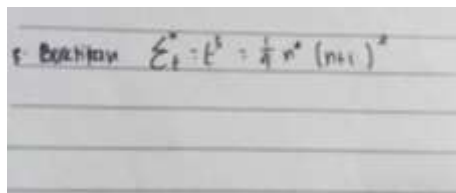 Buktikan Σ t = t³ = 1/4 n² (n+1)²